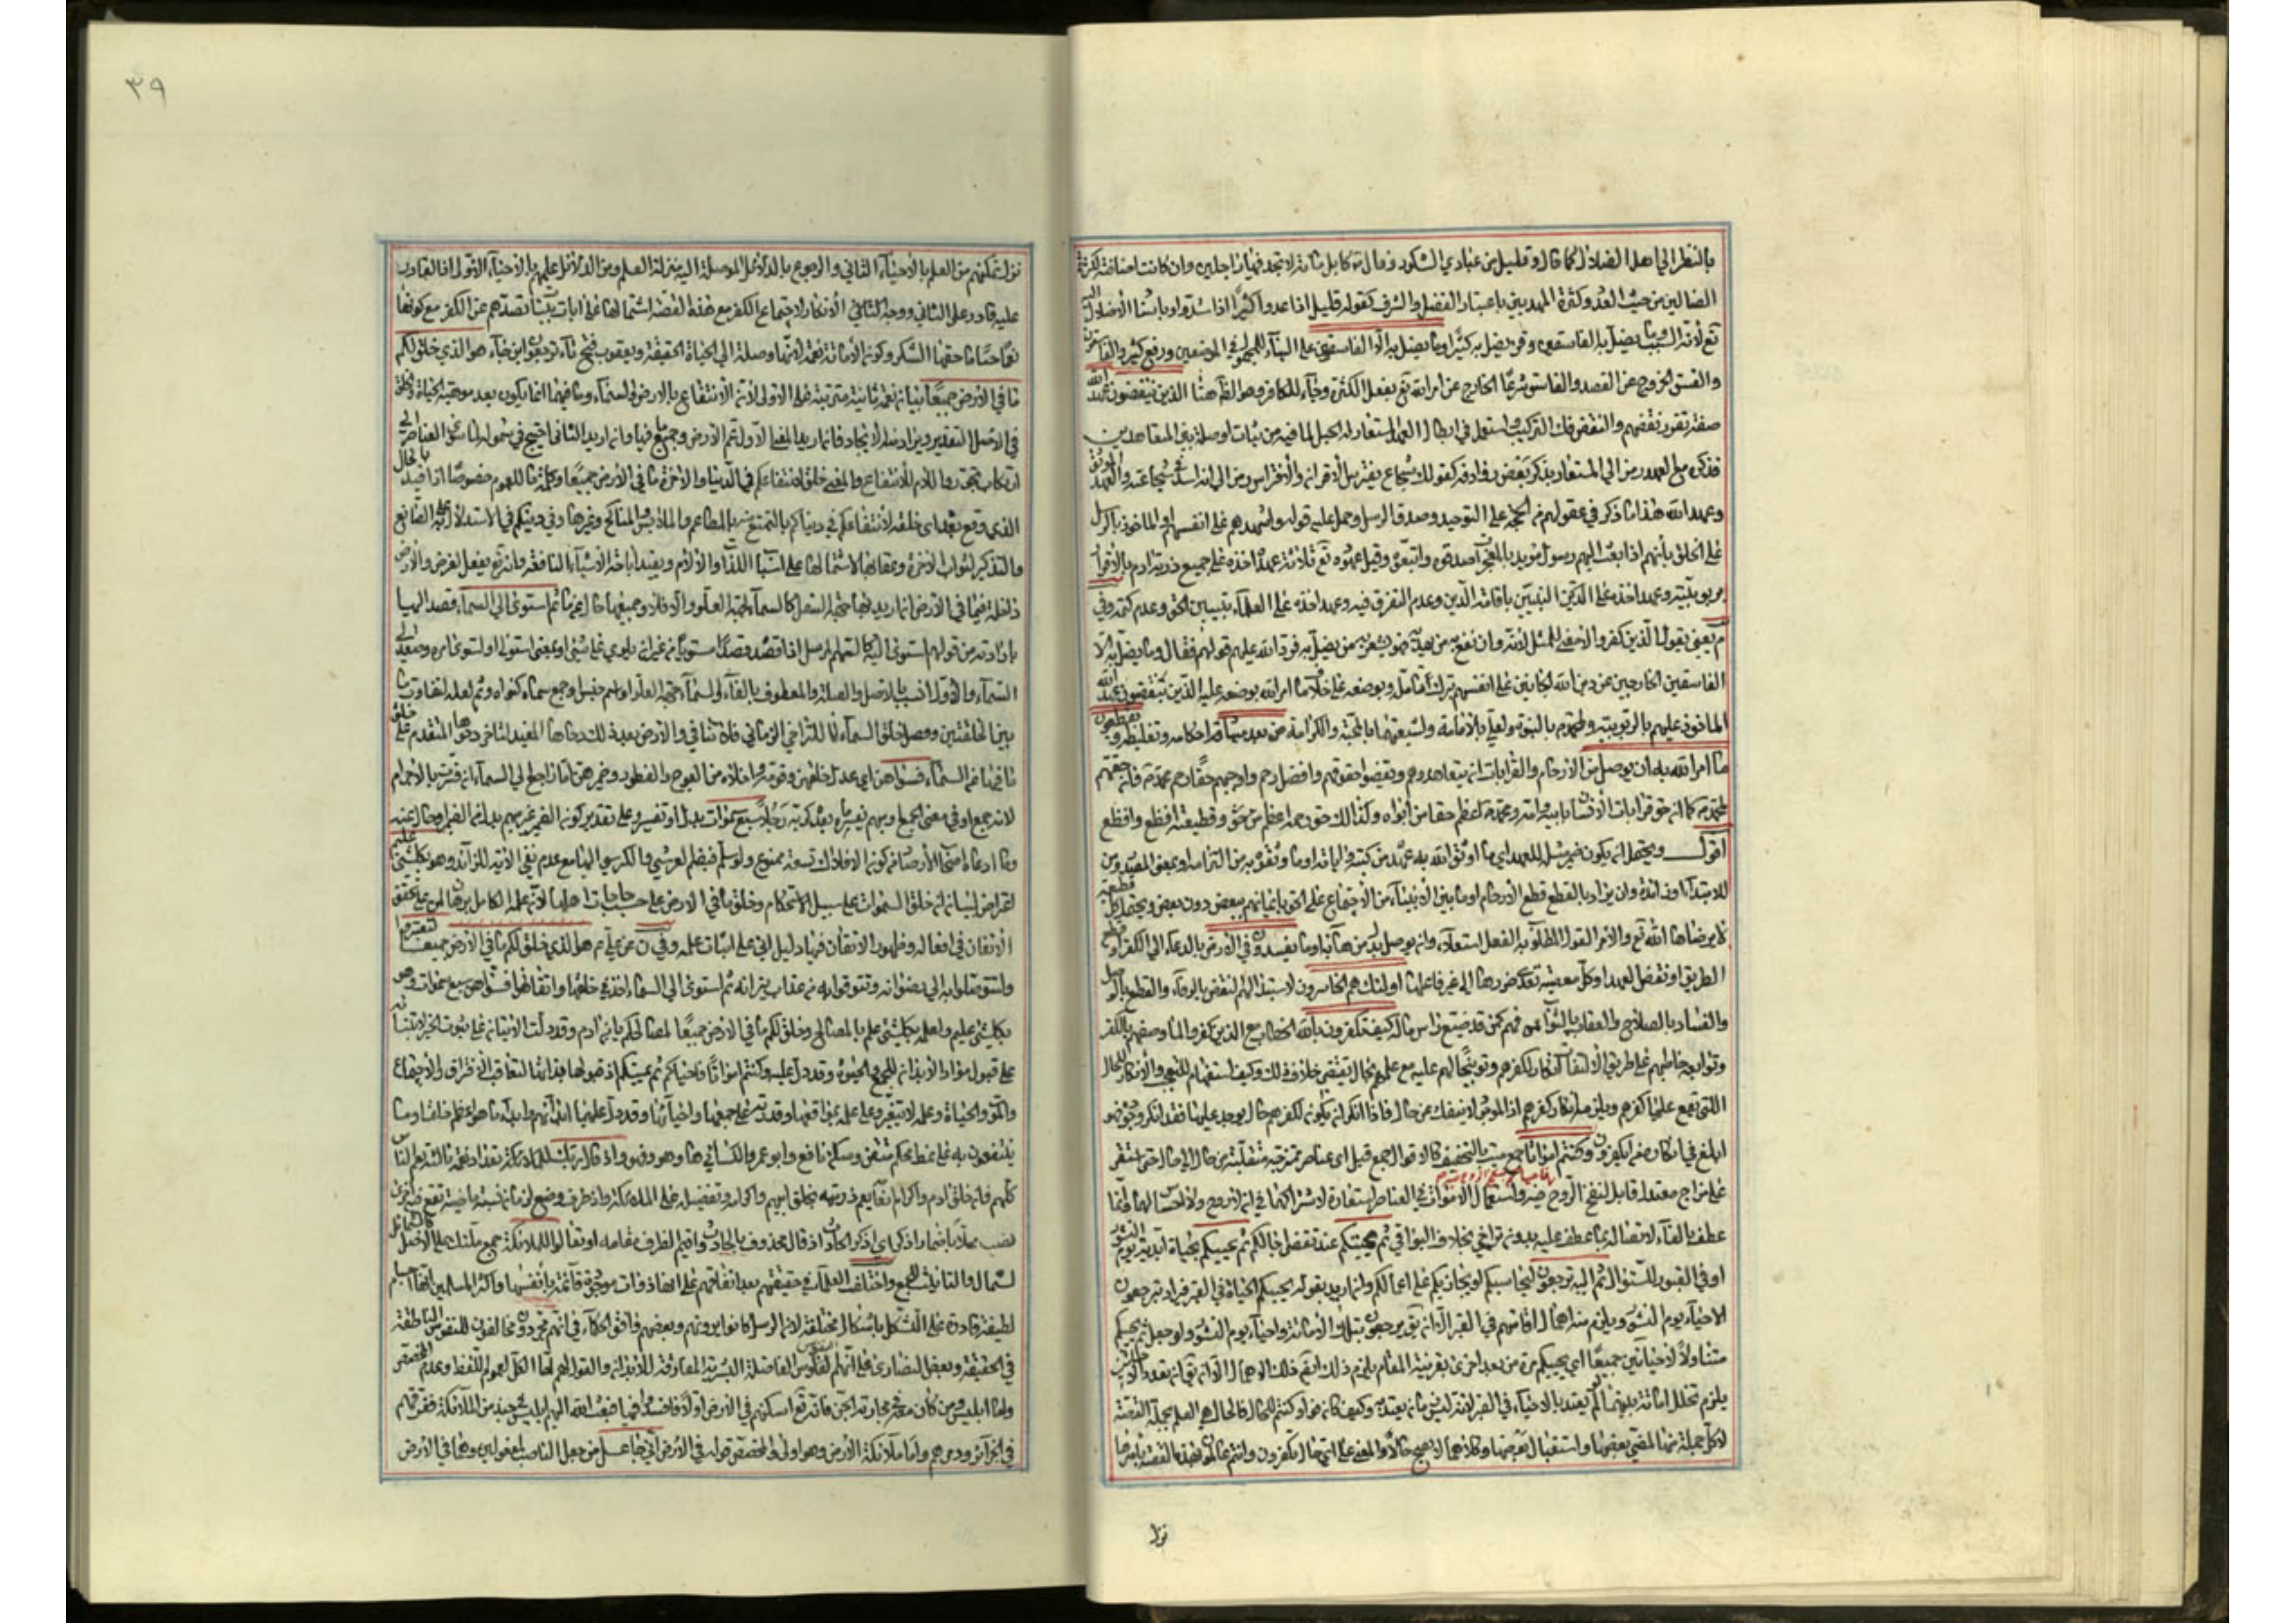 بالنظر الى اهل الضلال كما قال وقليل من عبادي الشكور وقال كابل مائة لا تجد فيها راحلة وان كانت اضافة كثرة
الضالين من حيث العدد وكثرة المهديين باعتبار الفضل والشرف كقوله قليل اذا عدوا كثير اذا شدوا واسناد الاضلال اليه
تع لانه السبب يضل به الفاسقين وقرئ يضل به كثير وما يضل به الا الفاسقون على البناء للمجهول في الموضعين ورفع كثير والفاسقون
والفسق الخروج عن القصد والفاسق شرعا الخارج عن امر الله تع بفعل الكثرة وجاء للكافر وهو الظ هنا الذين ينقضون عهد الله
صفة تقرر نقضهم والنقض فك التركيب واستعمل في ابطال العهد لاستعارة الحبل لما فيه من ثبات الوصلة بين المتعاهدين
فذكره مع العهد رمز الى المستعار بذكر بعض روادفه كقولك شجاع يفترس الاقرانه والافتراس رمز الى انه اسد في شجاعته والعهد الموثق
وعهد الله هذا ما ذكر في عقولهم من الحجة على التوحيد وصدق الرسل وحمل عليه قوله واشهدهم على انفسهم او الماخوذ بالرسل
على الخلق بأنهم اذا بعث اليهم رسول مؤيد بالمعجزات صدقوه واتبعوه وقيل عهوده تع ثلاثة عهد اخذه على جميع ذرية ادم بالاقرار
بربوبيته وعهد اخذه على النبيين باقامة الدين وعدم التفرق فيه وعهد اخذه على العلماء بتبيين الحق وعدم كتمه وفي
م يعني يقول الذين كفروا لا معنى للمثل لانه وان نفع به من يهديه فهو يضر به من يضل به فرد الله عليهم قولهم فقال وما يضل به الا
الفاسقين الخارجين عن دين الله الجانين على انفسهم بترك تأمله وبوضعه على خلاف ما امر الله بوضعه عليه الذين ينقضون عهد الله
الماخوذ عليهم بالربوبية ولمحمد بالنبوة ولعلي بالامامة ولشيعتهما بالمحبة والكرامة من بعد ميثاقه احكامه وتغليظه ويقطعون
ما امر الله به ان يوصل من الارحام والقرابات ان يتعاهدوهم ويقضوا حقوقهم وافضل رحم واوجبهم حقا رحم محمد فان حقهم
بمحمد كما ان حق قرابات الانسان بابيه وامه ومحمد اعظم حقا من ابواه وكذلك حق رحمه اعظم حق وقطيعته افظع وافظع
اقول ويحتمل ان يكون ضمير مثله للعهد اي ما اوثق الله به عهده من كتبه واياته او ما وثقوه به من التزامه او بمعنى المصدر ومن
للابتداء او زائدة وان يراد بالقطع قطع الارحام او ما بين الانبياء من الاجتماع على الحق بايمانهم ببعض دون بعض ويحتمل كل قطيعة
لا يرضاها الله تع والامر القول الطالب للفعل استعلاء وان يوصل بدل من ها به او ما ويفسدون في الارض بالدعاء الى الكفر او قطع
الطريق او نقض العهد او كل معصية تعدى ضررها الى غير فاعلها اولئك هم الخاسرون لاستبدالهم النقض بالوفاء والقطع بالوصل
والفساد بالصلاح والعقاب بالثواب فهم كمن قد ضيع راس ماله كيف تكفرون بالله الخطاب مع الذين كفروا لما وصفهم بالكفر
وتوابعه خاطبهم على طريق الالتفات انكارا لكفرهم وتوبيخا لهم عليه مع علمهم بحال يقتضي خلاف ذلك وكيف استفهام للتعجب والانكار للحال
التي تقع عليها كفرهم ويلزمه انكار كفرهم اذا الموجود لا ينفك عن حال فاذا انكر ان يكون لكفرهم حال يوجد عليها فقد انكر وجوده فهو
ابلغ في انكاره من اتكفرون وكنتم امواتا جمع ميت بالتخفيف كالاقوال جمع قيل اي عناصر ممتزجة متقلبة من حال الى حال حتى استقر
على مزاج معتدل قابل لنفخ الروح فيه واستعمال الاموات في العناصر استعارة لاشتراكهما في ان لا روح ولا احساس لهما فاحياكم
عطف بالفاء لاتصاله بما عطف عليه بدون تراخي بخلاف البواقي ثم يميتكم عند تقضى اجالكم ثم يحييكم بحياة ابدية يوم النشور
او في القبور للسؤال ثم اليه ترجعون ليحاسبكم او يجازيكم على اعمالكم وان اريد بقوله يحييكم الحياة في القبر فيراد بترجعون
الاحياء يوم النشور ويلزم منه اهمال اماتتهم في القبر الا ان يق يرجعون بتلك الاماتة واحياء يوم النشور ولو جعل ثم يحييكم
متناولا لاحيائين جميعا اي يحييكم مرة من بعد اخرى بقرينة المقام يلزم ذلك ايضا ذلك الاهمال الا ان يق ان تعدد الاحياء
يلزم تخلل اماتة بينهما ولم يعتد بالاحياء في القبر لانه ليس ما به يعتد به وكيف كان فواو كنتم للحال فالحال هي العلم بجملة القصة
لا كل جملة منها لمضي بعضها واستقبال بعضها وكلاهما لا يصح حالا والمعنى على اي حال تكفرون وانتم عالمون بهذه القصة باسرها
نزل
٣٩
نزل تمكنهم من العلم بالاحياء الثاني والرجوع بالدلائل الموصلة اليه منزلة العلم ومن الدلائل علمهم بالاحياء الاول اذ القادر
عليه قادر على الثاني ووجه الثاني الانكار لاجتماع الكفر مع هذه القصة اشتمالها على ايات بينات تصدهم عن الكفر مع كونها
نعما حسنا ما حقها الشكر وكون الاماتة نعمة لانها وصلة الى الحياة الحقيقية ويعقوب فتح تاء ترجعون ابن جناء هو الذي خلق لكم
ما في الارض جميعا بيان نعمة ثانية مترتبة على الاولى لان الانتفاع بالارض والسماء وما فيهما انما يكون بعد موهبة الحياة والخلق
في الاصل التقدير ويراد منه الايجاد فان اريد المعنى الاول تم الارض وجميع ما فيها وان اريد الثاني احتيج في شموله لما سوى العناصر الى
ارتكاب تجوز واللام للانتفاع والمعنى خلق لانتفاعكم في الدنيا والاخرة ما في الارض جميعا وكلمة ما للعموم خصوصا اذا قيد بالحال
الذي وقع بعد اي خلقه لانتفاعكم في دنياكم بالتمتع بالمطاعم والملابس والمناكح وغيرها وفي دينكم في الاستدلال به على الصانع
والتذكير لثواب الاخرة وعقابها لاشتمالها على اسباب اللذات والالام ويفيد اباحة الاشياء النافعة وانه تع يفعل لغرض والارض
داخلة فيما في الارض ان اريد بها جهة السفل كالسماء لجهة العلو والا فلا وجميعها حال من ما ثم استوى الى السماء قصد اليها
بارادته من قولهم استوى اليه كالسهم المرسل اذا قصده قصدا مستويا من غير ان يلوي على شئ او بمعنى استولى او استوى امره وصعد الى
السماء والاول انسب بالاصل والصلة والمعطوف بالفاء والسماء جهة العلو او اسم جنس او جمع سماءة كنواة وثم لعله لتفاوت ما
بين الخلقتين وفضل خلق السماء لا للتراخي الزماني فلا تنافي والارض بعد ذلك دحاها المفيد لتاخر دحوها المتقدم على خلق
ما فيها من السماء فسواهن اي عدل خلقهن وقومه واخلاه من العوج والفطور وضمير هن اما راجع الى السماء ان فسرت بالاجرام
لانه جمع او في معنى الجمع او مبهم يفسره ما بعده كربه رجلا سبع سموات بدل او تفسير وعلى تقدير كون الضمير غير مبهم بدل من الضمير او حال عنه
وما ادعاه اصحاب الارصاد من كون الافلاك تسعة ممنوع ولو سلم فبضم العرش والكرسي اليها مع عدم نفي الاية للزائد وهو بكل شئ عليم
اعتراض لبيان انه خلق السموات على سبيل الاحكام وخلق ما في الارض على حسب حاجات اهلها لانه علمه الكامل برهان لمي على تحقق
الاتقان في افعاله وظهور الاتقان فيها دليل اني على اثبات علمه وفي ن عن علي م هو الذي خلق لكم ما في الارض جميعا لتعتبروا
ولتتوصلوا به الى رضوانه وتتوقوا به من عذاب نيرانه ثم استوى الى السماء اخذ في خلقها واتقانها فسواهن سبع سموات وهو
بكل شئ عليم ولعلمه بكل شئ علم بالمصالح وخلق لكم ما في الارض جميعا لمصالحكم يا بني ادم وقد دلت الايتان على ثبوت الحشر لابتنائه
على قبول مواد الابدان للجمع والحيوة وقد دل عليه وكنتم امواتا فاحياكم ثم يميتكم اذ قبولها بذاتها لتعاقب الافتراق والاجتماع
والموت والحياة وعلمه لا يتغير وعلى علمه بمواقعها وقدرته على جمعها واحيائها وقد دل عليهما ابتدائهم وابداء ما هو اعظم خلقا وما
ينتفعون به على نمط محكم متقن وسكن نافع وابو عمرو والكسائي ها وهو وفهو واذ قال ربك للملائكة تعداد نعمة ثالثة تعم الناس
كلهم فان خلق ادم واكرامه انعام يعم ذريته بخلق ابيهم واكرامه وتفضيله على الملائكة واذ ظرف وضع لزمان نسبة ماضية تقع فيه اخرى
نصب محلا باضمار اذكر اي اذكر الحادث اذ قال فحذف الحادث واقيم الظرف مقامه او تعالوا والملائكة جمع ملئك على الاصل كالشمائل
لشمال والتانيث للجمع واختلف العلماء في حقيقتهم بعد اتفاقهم على انها ذوات موجودة قائمة بانفسها واكثر المسلمين انها اجسام
لطيفة قادرة على التشكل باشكال مختلفة لان الرسل كانوا يرونهم وبعضهم وافق الحكماء في انهم مجردون مخالفون للنفوس الناطقة
في الحقيقة وبعض النصارى على انهم النفوس الفاضلة البشرية المفارقة للابدان والقول لهم لها الكل لعموم اللفظ وعدم المخصص
ولما ابليس ومن كان معه في محاربة الجن فانه تع اسكنهم في الارض اولا فافسدوا فيها فبعث الله اليهم ابليس في جند من الملائكة ففرقهم
في الجزائر ودمرهم واما ملائكة الارض وهو اولى والمخصص قوله في الارض اني جاعل من جعل الناصب لمفعولين وهما في الارض